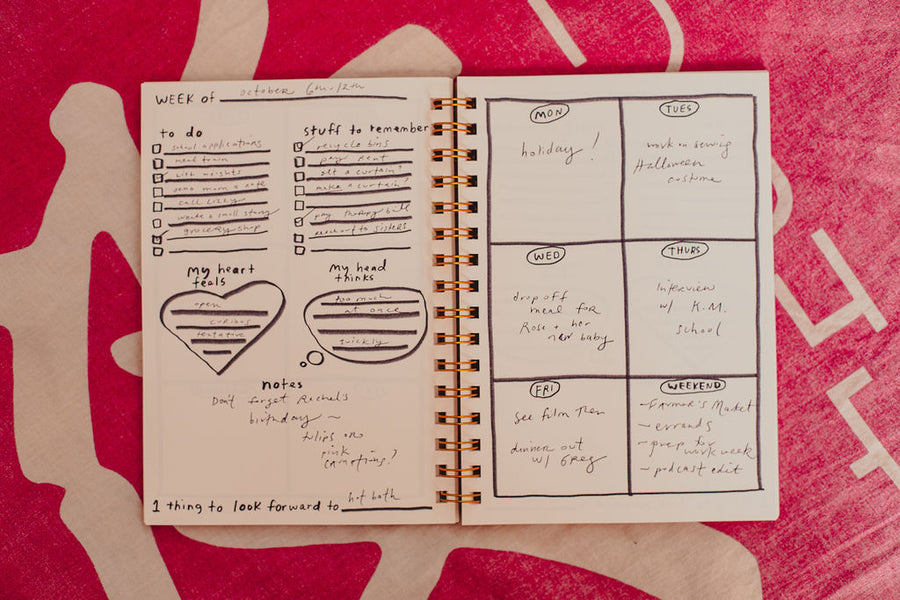 WEEK of October 6th-12th
to do
school applications
meal train
lift weights
send mom a cake
call Lizzy
write a small story
grocery shop
stuff to remember
recycle bins
pay rent
get a curtain?
make a curtain?
pay therapy bill
reach out to sisters
my heart
feels
open
curious
tentative
my head
thinks
too much
at once
quickly
notes
Don't forget Rachel's
birthday ~
tulips or
pink
carnations?
1 thing to look forward to hot bath
MON
holiday!
TUES
work on sewing
Halloween
costume
WED
drop off
meal for
Rose + her
new baby
THURS
Interview
w/ K.M.
school
FRI
see film then
dinner out
w/ Greg
WEEKEND
- Farmer's Market
- errands
- prep for
work week
- podcast edit